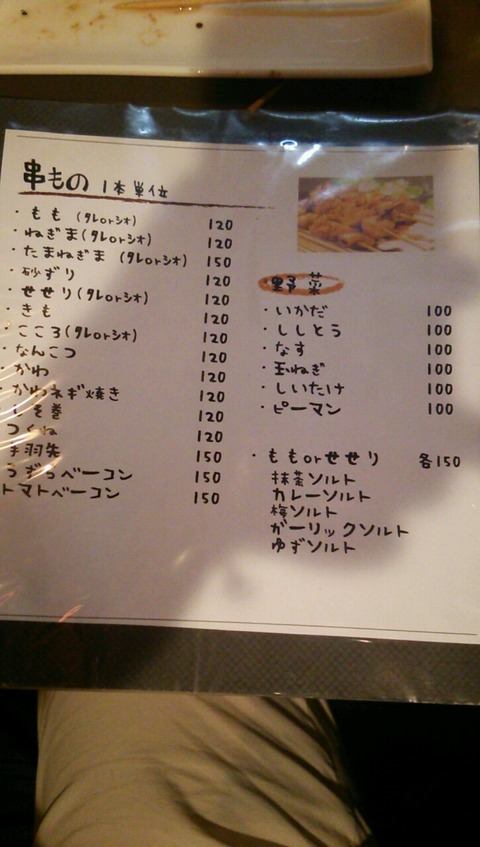 串もの 1本単位
・もも (タレorシオ) 120
・ねぎま(タレorシオ) 120
・たまねぎま (タレorシオ) 150
・砂ずり 120
・せせり(タレorシオ) 120
・きも 120
・こころ(タレorシオ) 120
・なんこつ 120
・かわ 120
・かわネギ焼き 120
しそ巻 120
つくね 120
手羽先 150
うずらベーコン 150
トマトベーコン 150
野菜
・いかだ 100
・ししとう 100
・なす 100
・玉ねぎ 100
・しいたけ 100
・ピーマン 100
・ももorせせり 各150
抹茶ソルト
カレーソルト
梅ソルト
ガーリックソルト
ゆずソルト